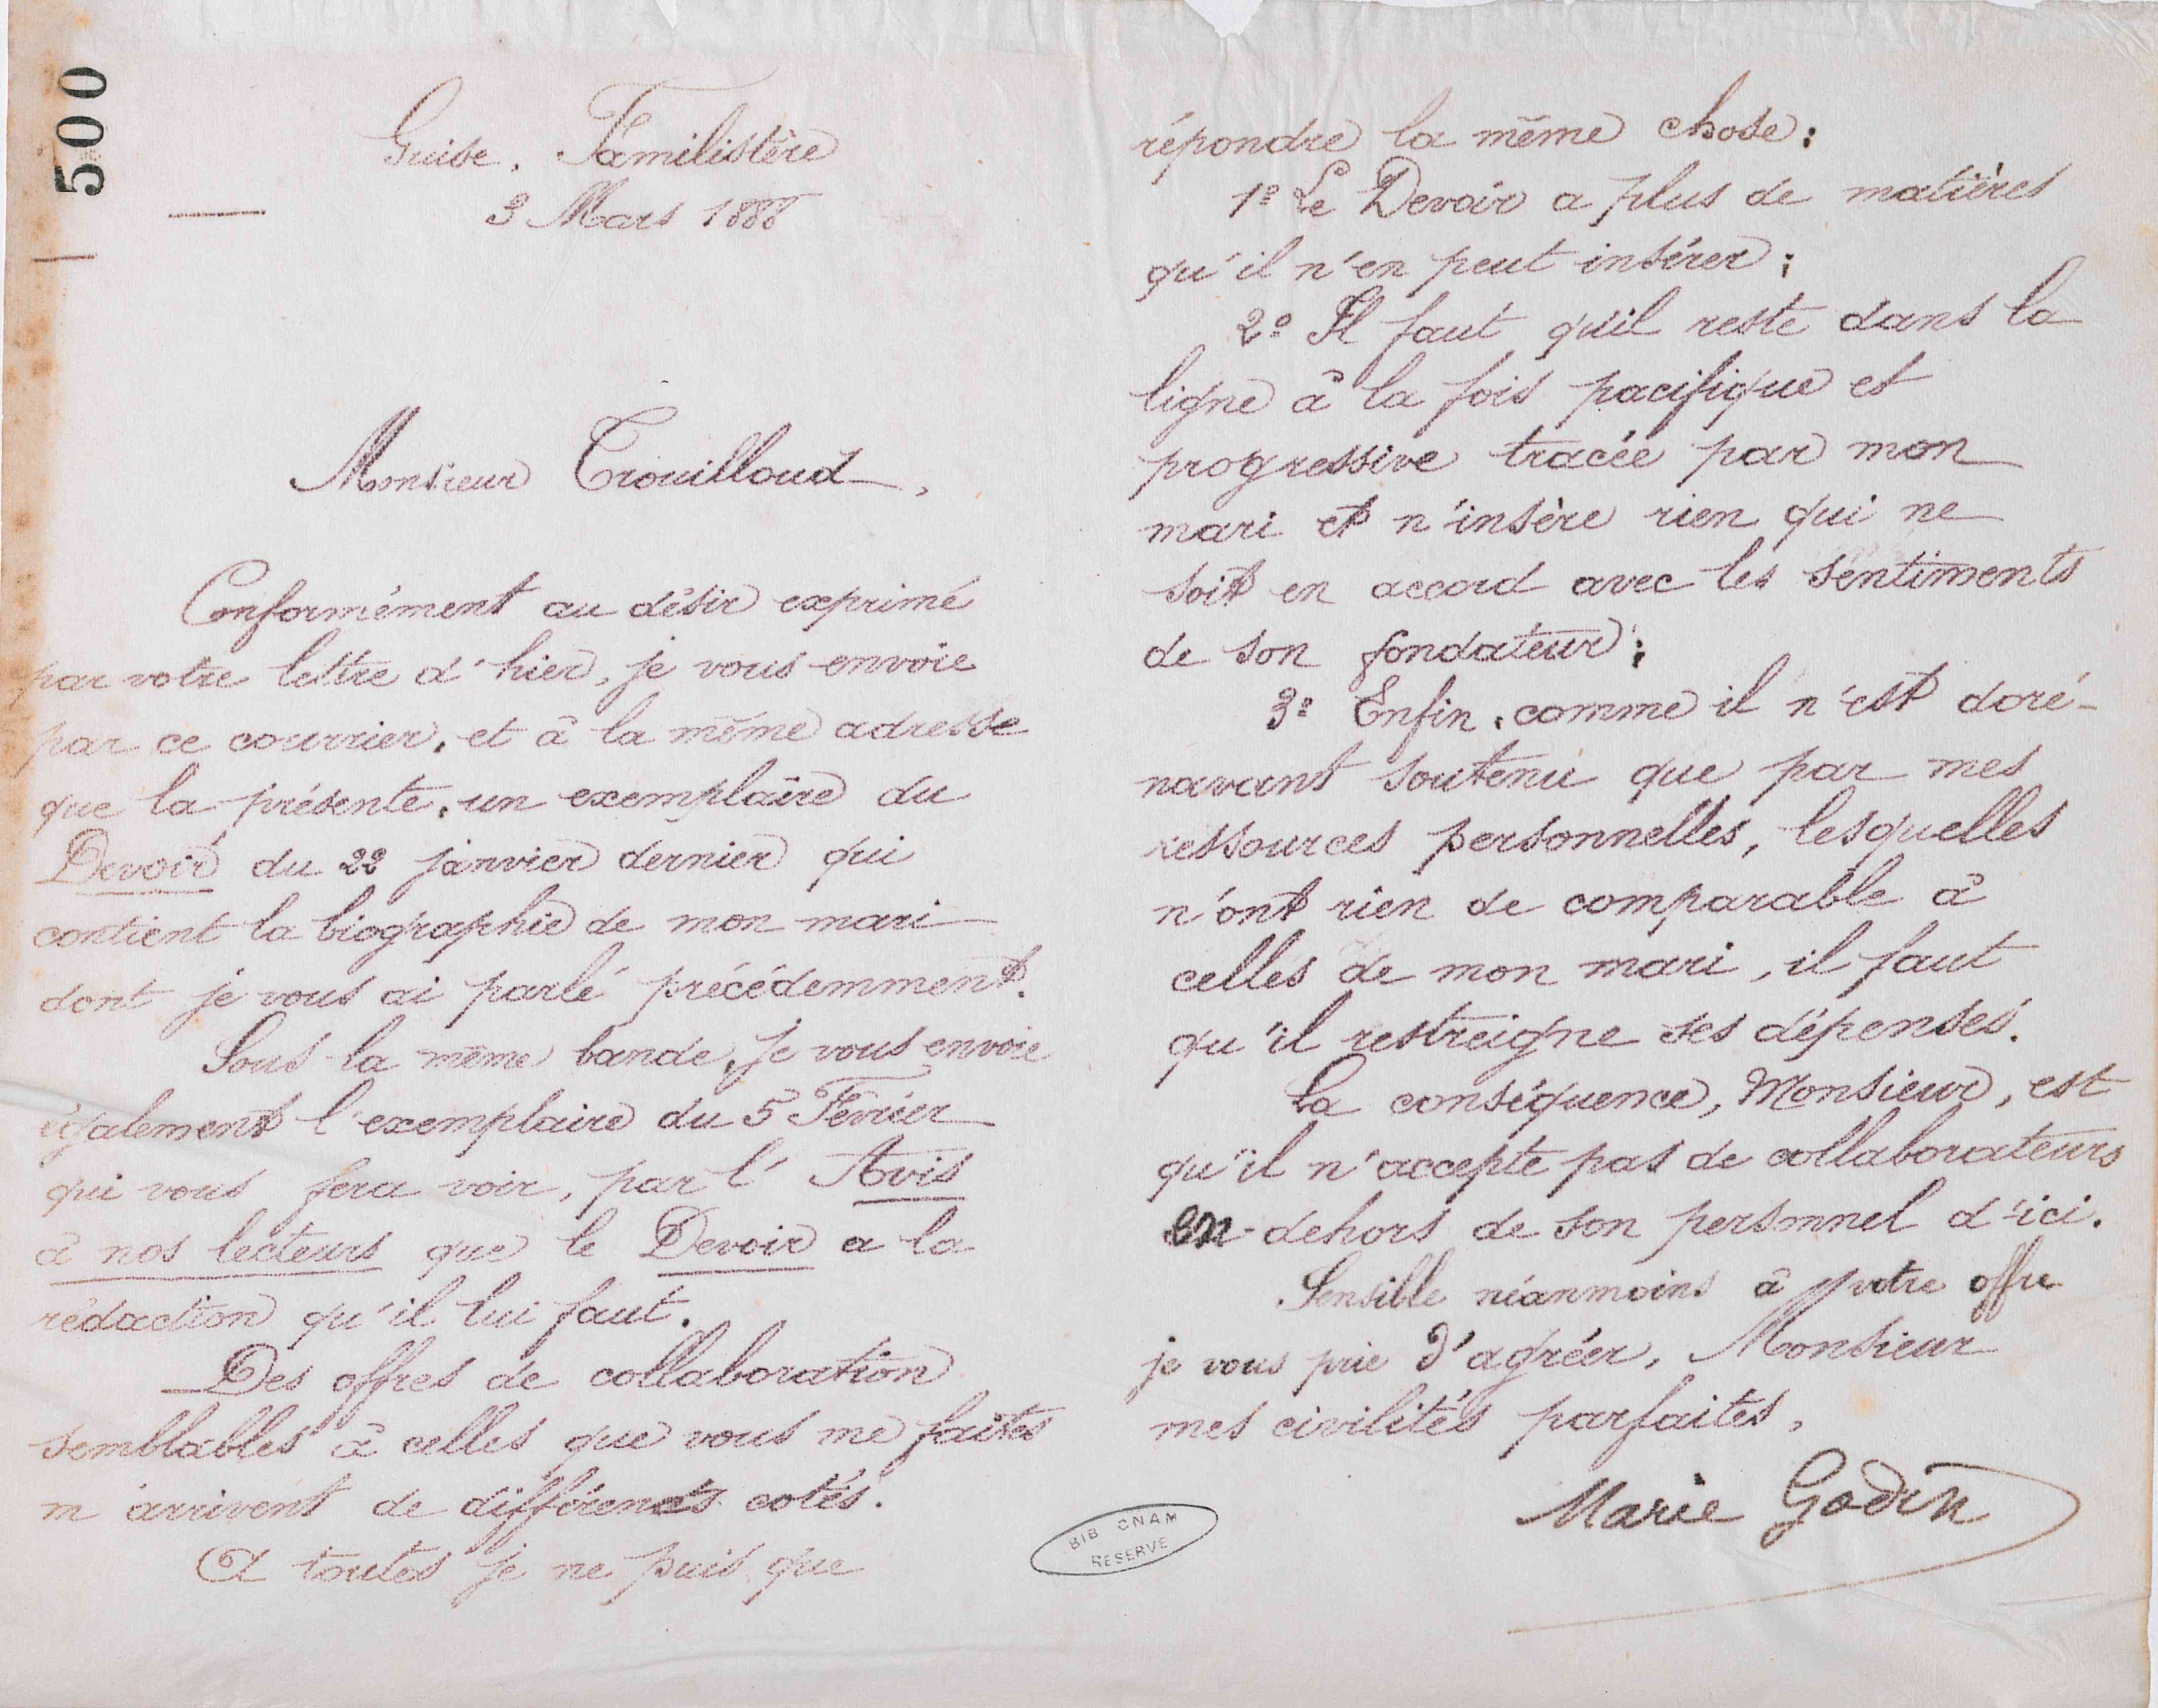 500
Guise. Familistère
3 Mars 1888
Monsieur Trouilloud,
Conformément au désir exprimé
par votre lettre d'hier, je vous envoie
par ce courrier, et à la même adresse
que la présente, un exemplaire du
Devoir du 22 janvier dernier qui
contient la biographie de mon mari
dont je vous ai parlé précédemment.
Sous la même bande, je vous envoie
également l'exemplaire du 5 Février
qui vous fera voir, par l'Avis
à nos lecteurs que le Devoir a la
rédaction qu'il lui faut.
Des offres de collaboration
semblables à celles que vous me faites
m'arrivent de différents cotés.
A toutes je ne puis que
répondre la même chose :
1º Le Devoir a plus de matières
qu'il n'en peut insérer ;
2º Il faut qu'il reste dans la
ligne à la fois pacifique et
progressive tracée par mon
mari et n'insère rien qui ne
soit en accord avec les sentiments
de son fondateur ;
3º Enfin, comme il n'est doré-
navant soutenu que par mes
ressources personnelles, lesquelles
n'ont rien de comparable à
celles de mon mari, il faut
qu'il restreigne ses dépenses.
La conséquence, Monsieur, est
qu'il n'accepte pas de collaborateurs
en-dehors de son personnel d'ici.
Sensible néanmoins à votre offre
je vous prie d'agréer, Monsieur
mes civilités parfaites,
Marie Godin
BIB CNAM
RESERVE